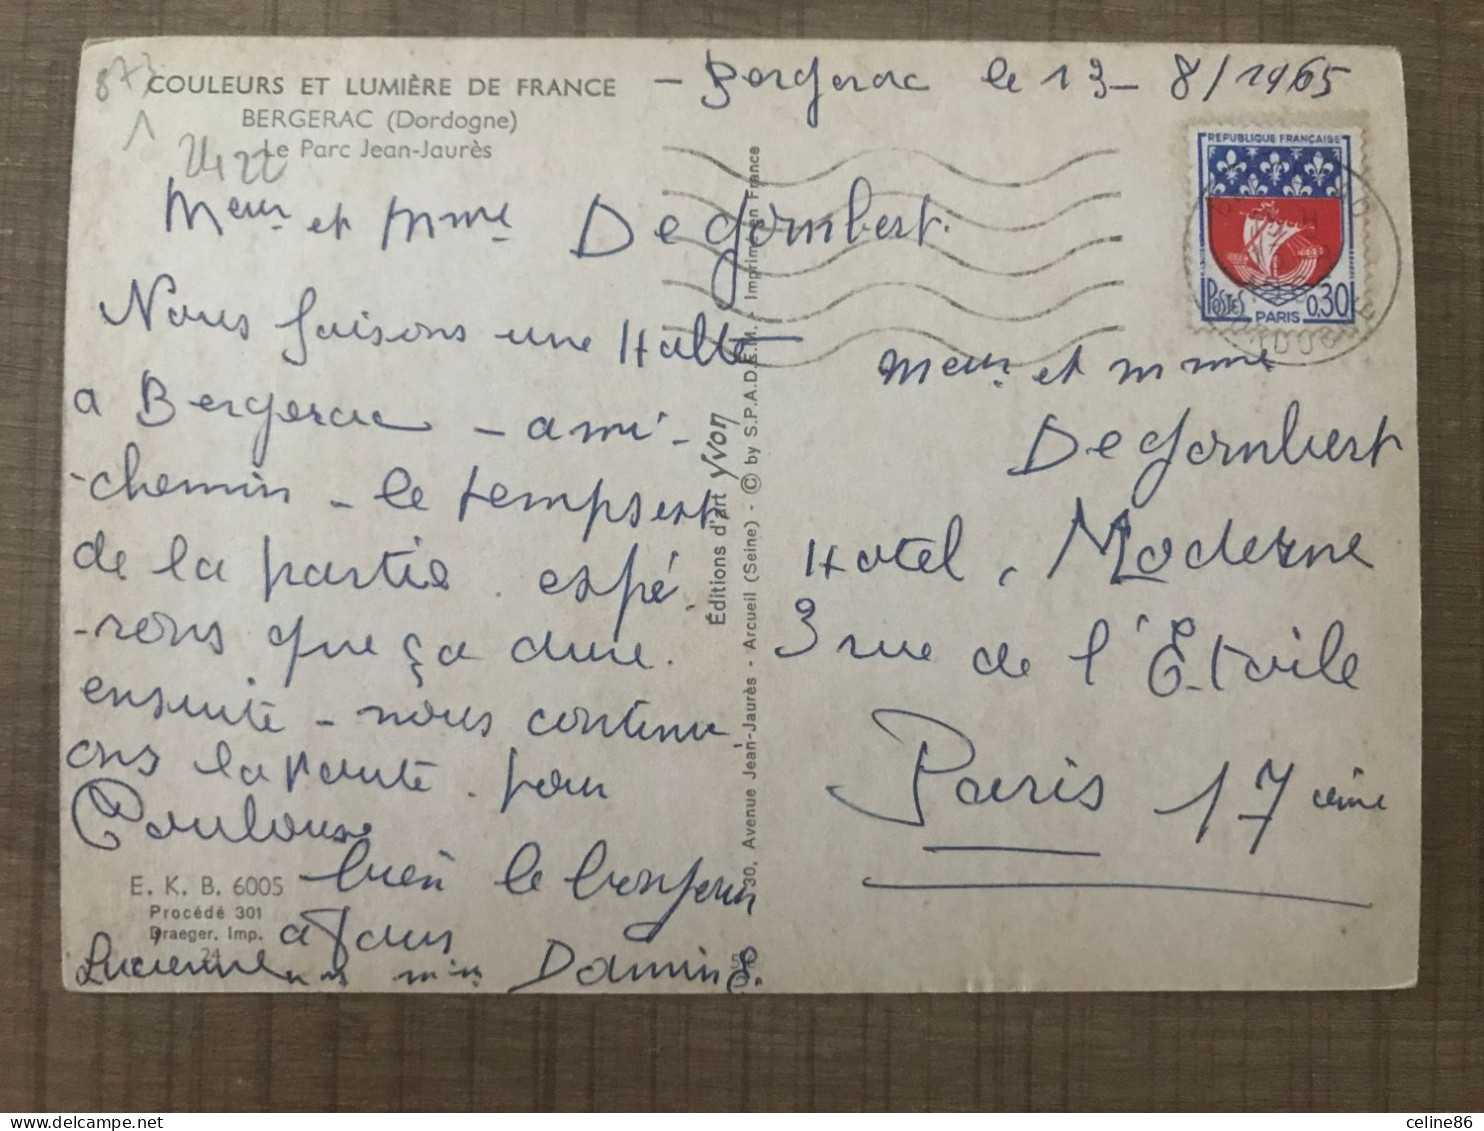 873
COULEURS ET LUMIÈRE DE FRANCE
1
BERGERAC (Dordogne)
2422
Le Parc Jean-Jaurès
- Bergerac le 13 - 8/1965
Meur et Mme Degombert.
Nous faisons une Halte
a Bergerac - a mi -
- chemin - le temps est
de la partie. espé.
- rons que ça dure.
ensuite - nous continu
ons la route. pour
Toulouse
bien le bonjour
a vous
Lucienne
E. K. B. 6005
Procédé 301
Draeger, Imp.
24
Éditions d'art yvon
30, Avenue Jean-Jaurès - Arcueil (Seine) - © by S.P.A.D.E.M. - Imprimé en France
RÉPUBLIQUE FRANÇAISE
POSTES
0,30
PARIS
DORDOGNE
Meur et mme
Degombert
Hotel. Moderne
3 rue de l'Etoile
Paris 17 ème
celine86